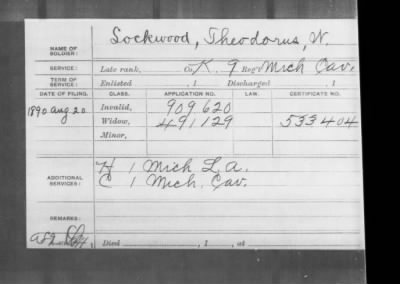 NAME OF SOLDIER: Lockwood, Theodorus, W.
SERVICE: Late rank, Co. K, 9 Reg't Mich Cav.
TERM OF SERVICE: Enlisted , 1 Discharged , 1
DATE OF FILING. CLASS. APPLICATION NO. LAW. CERTIFICATE NO.
1890 Aug 20 Invalid, 909620
Widow, 491129 533404
Minor,
ADDITIONAL SERVICES: H 1 Mich L.A.
C 1 Mich. Cav.
REMARKS:
Died , 1 , at